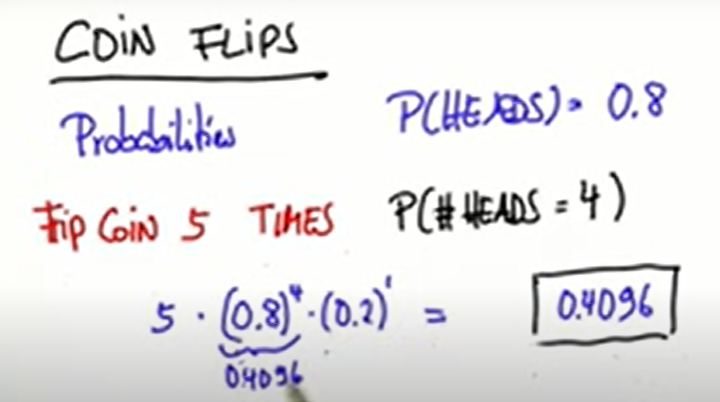 COIN FLIPS
Probabilities P(HEADS) = 0.8
Flip COIN 5 TIMES P(# HEADS = 4)
5 · (0.8)⁴ · (0.2)¹ = 0.4096
0.4096